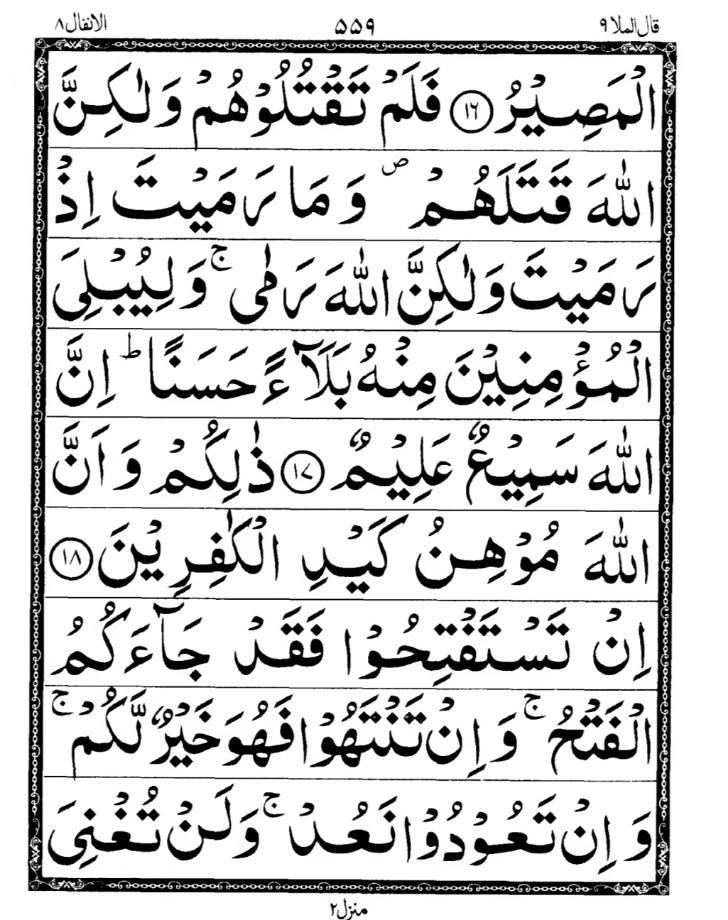 قال الملا ۹ ۵۵۹ الانفال ۸
الْمَصِيْرُ ⑯ فَلَمْ تَقْتُلُوْهُمْ وَلٰكِنَّ
اللّٰهَ قَتَلَهُمْ ۪ وَمَا رَمَيْتَ اِذْ
رَمَيْتَ وَلٰكِنَّ اللّٰهَ رَمٰى ۚ وَلِيُبْلِىَ
الْمُؤْمِنِيْنَ مِنْهُ بَلَآءً حَسَنًا ؕ اِنَّ
اللّٰهَ سَمِيْعٌ عَلِيْمٌ ⑰ ذٰلِكُمْ وَاَنَّ
اللّٰهَ مُوْهِنُ كَيْدِ الْكٰفِرِيْنَ ⑱
اِنْ تَسْتَفْتِحُوْا فَقَدْ جَآءَكُمُ
الْفَتْحُ ۚ وَاِنْ تَنْتَهُوْا فَهُوَ خَيْرٌ لَّكُمْ ۚ
وَاِنْ تَعُوْدُوْا نَعُدْ ۚ وَلَنْ تُغْنِىَ
منزل ۲